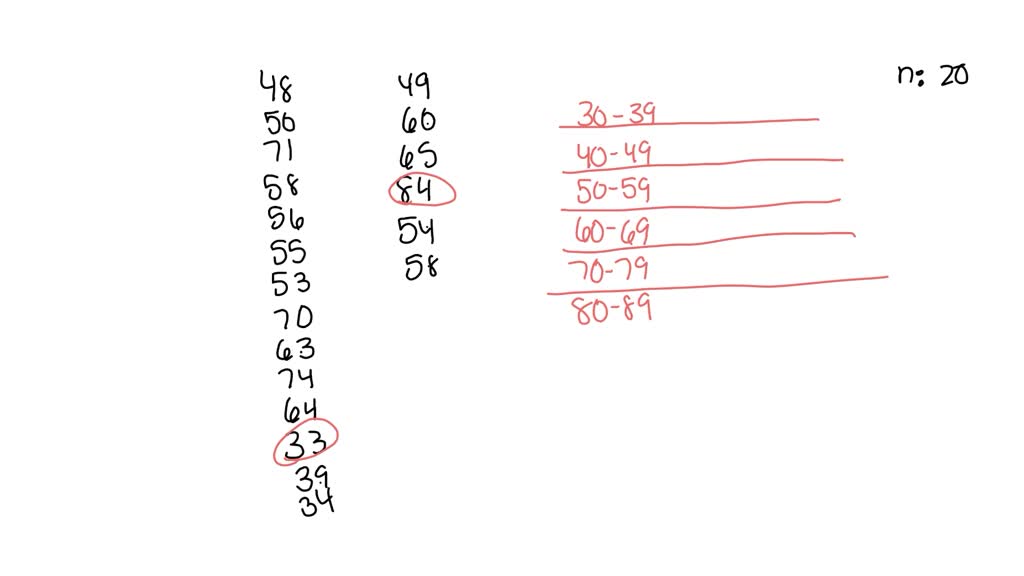 48
50
71
58
56
55
53
70
63
74
64
33
39
34
49
60
65
84
54
58
30-39
40-49
50-59
60-69
70-79
80-89
n: 20